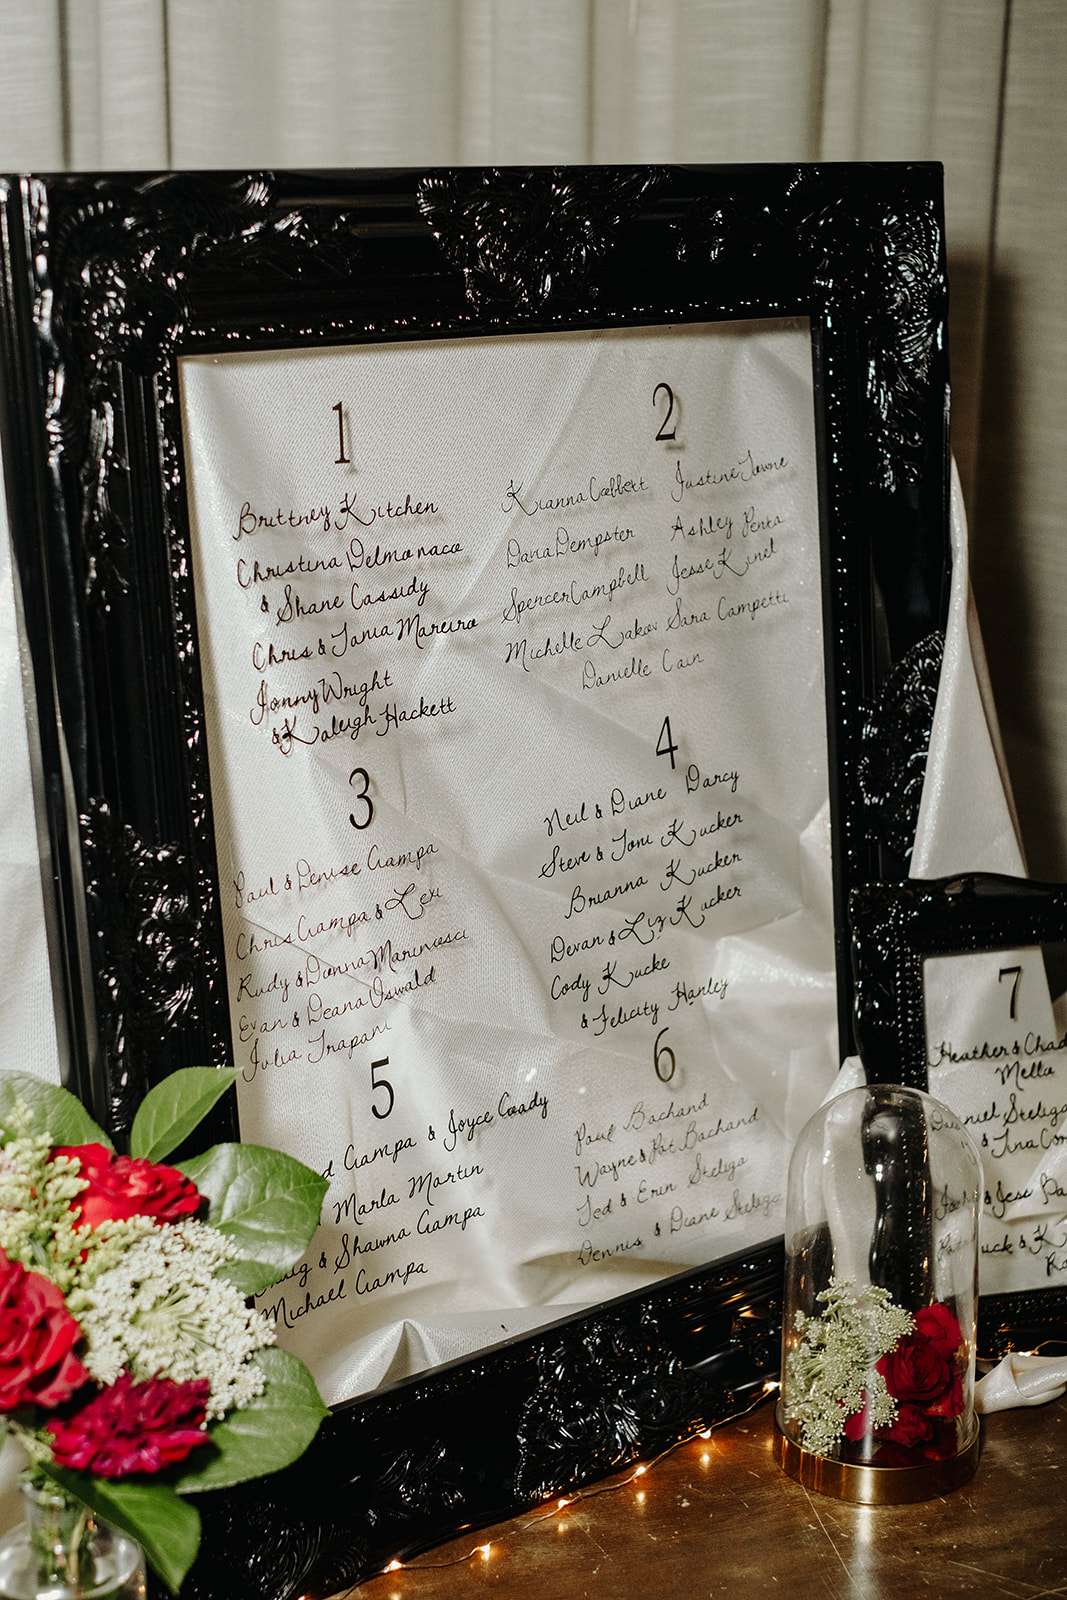 1
Brittney Kitchen
Christina Delmonaco
& Shane Cassidy
Chris & Tania Mareiro
Jonny Wright
& Kaleigh Hackett
2
Kianna Cabbett Justine Towne
Dana Dempster Ashley Penta
Spencer Campbell Jesse Kinel
Michelle Lakov Sara Campetti
Danielle Cain
3
Paul & Denise Ciampa
Chris Ciampa & Lexi
Rudy & Donna Marinucci
Evan & Deana Oswald
Julia Trapani
4
Neil & Diane Darcy
Steve & Toni Kucker
Brianna Kucker
Devan & Liz Kucker
Cody Kucke
& Felicity Hanley
5
d Ciampa & Joyce Coady
Marla Martin
& Shawna Ciampa
Michael Ciampa
6
Paul Bachand
Wayne & Pat Bachand
Ted & Erin Steliga
Dennis & Diane Steliga
7
Heather & Chad
Mella
Daniel Steliga
& Tina Cor
& Jess Pa
uck & K